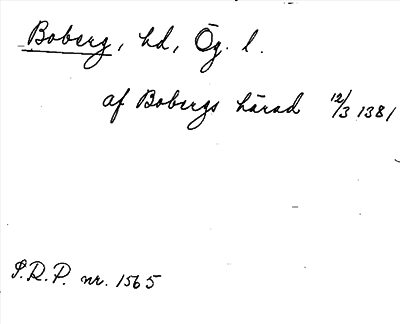 Boberg, hd, Ög. l.
af Bobergs härad 12/3 1381
S.R.P. nr. 1565